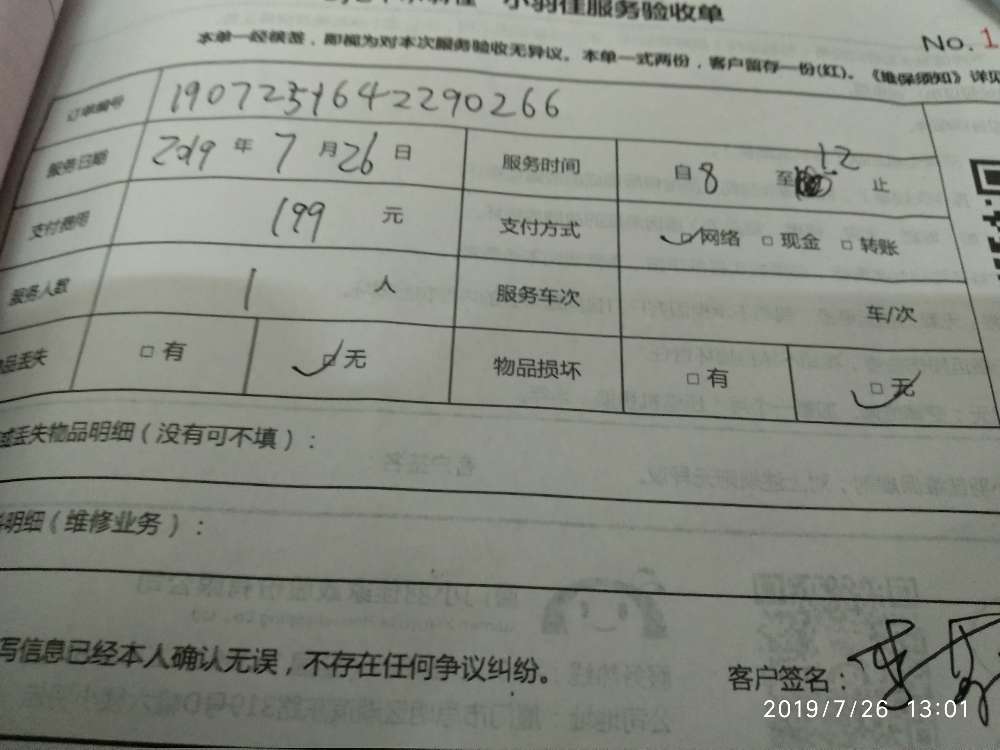 小羽佳服务验收单
No. 1
本单一经核签，即视为对本次服务验收无异议。本单一式两份，客户留存一份(红)。《维保须知》详见
订单编号 19072351642290266
服务日期 2019 年 7 月 26 日 服务时间 自 8 至 12 止
支付费用 199 元 支付方式 □网络 □现金 □转账
服务人数 1 人 服务车次 车/次
物品丢失 □有 □无 物品损坏 □有 □无
丢失物品明细（没有可不填）：
明细（维修业务）：
写信息已经本人确认无误，不存在任何争议纠纷。
客户签名：
2019/7/26 13:01